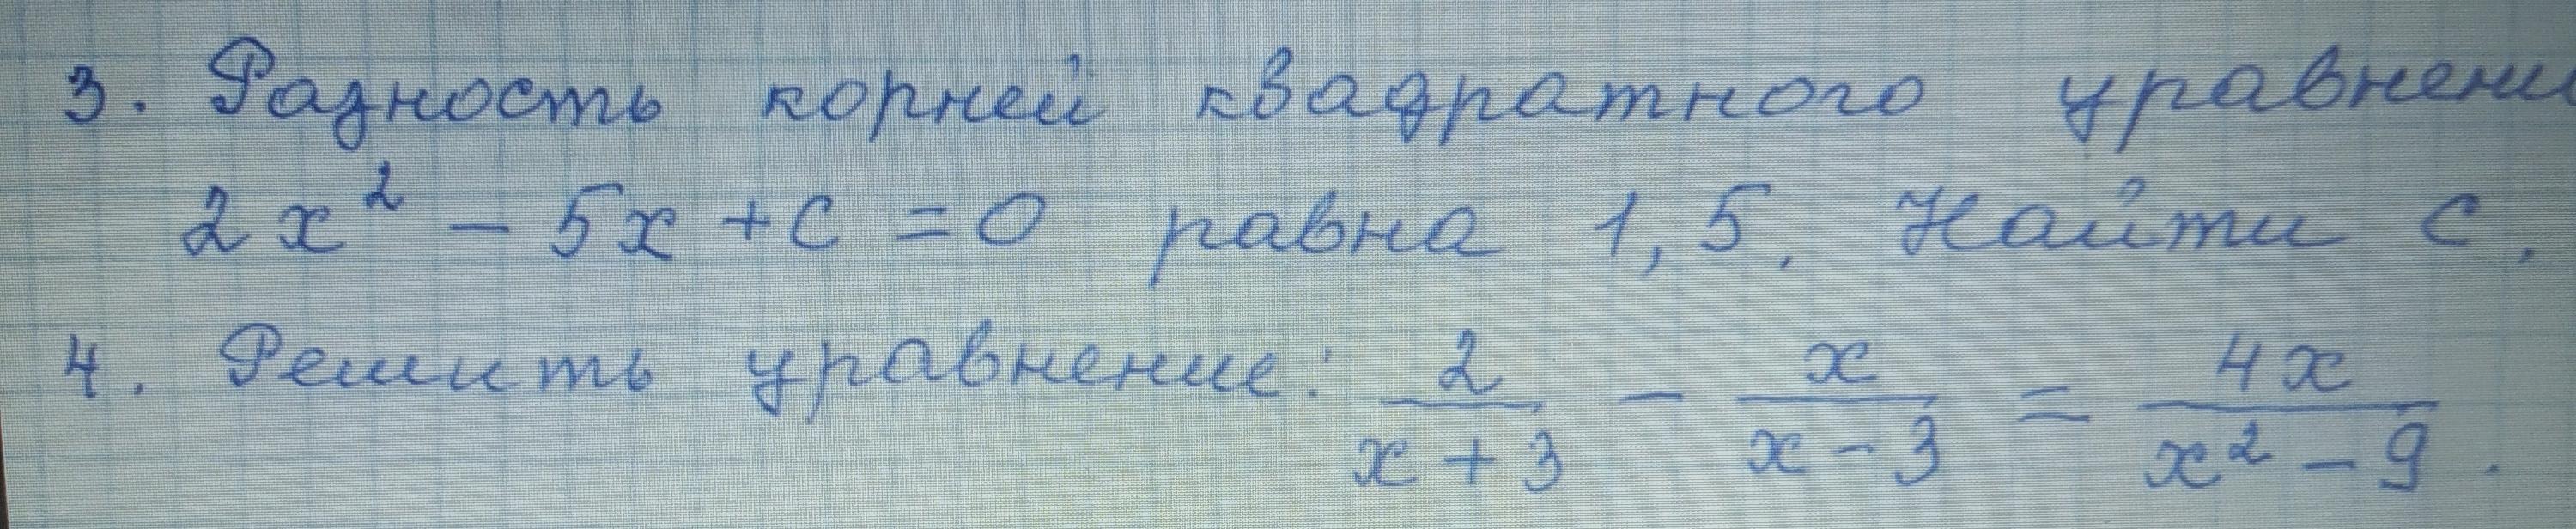 3. Разность корней квадратного уравнени
2x² - 5x + c = 0 равна 1,5. Найти c.
4. Решить уравнение: 2/(x+3) - x/(x-3) = 4x/(x²-9).